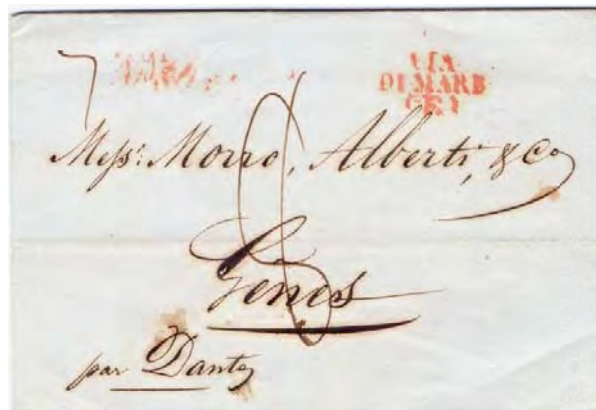 VIA
DI MARE
Messrs. Morro, Alberti, & Co
Genes
par Dante